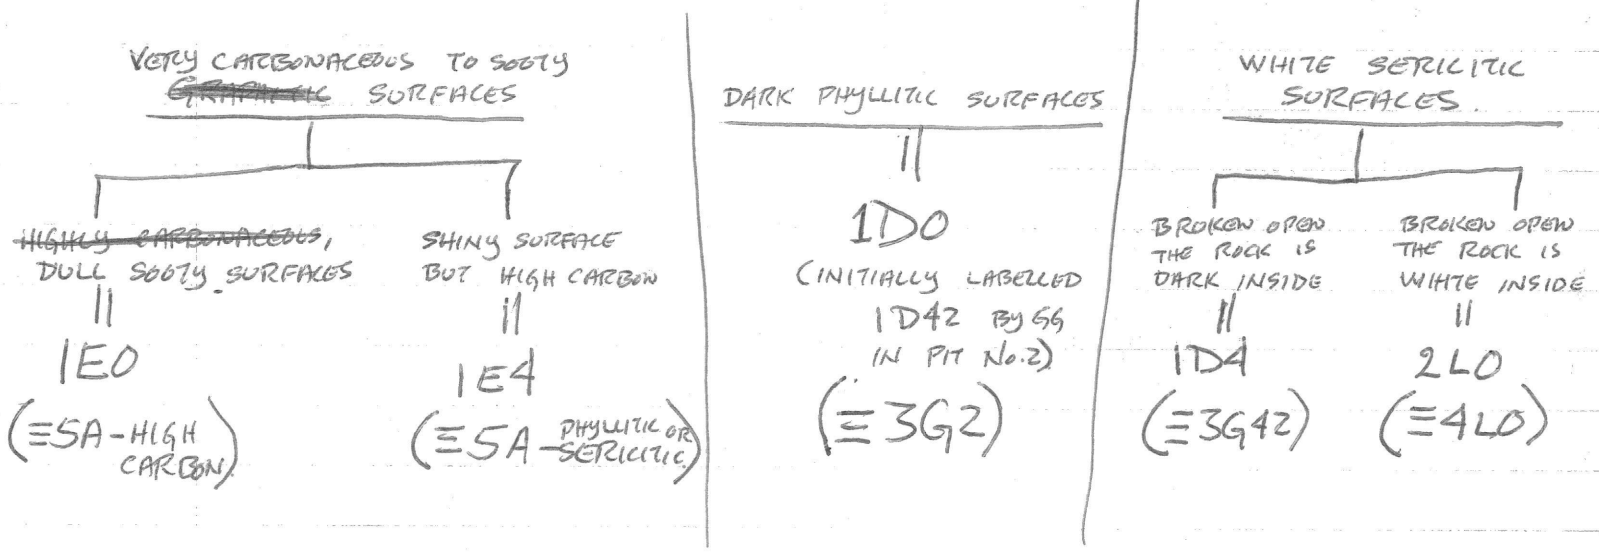 VERY CARBONACEOUS TO SOOTY
GRAPHITIC SURFACES
HIGHLY CARBONACEOUS,
DULL SOOTY SURFACES
||
1E0
(≡5A-HIGH
CARBON)
SHINY SURFACE
BUT HIGH CARBON
||
1E4
(≡5A-PHYLLITIC OR
SERICITIC)
DARK PHYLLITIC SURFACES
||
1D0
(INITIALLY LABELLED
1D42 BY GG
IN PIT No.2)
(≡3G2)
WHITE SERICITIC
SURFACES.
BROKEN OPEN
THE ROCK IS
DARK INSIDE
||
1D4
(≡3G42)
BROKEN OPEN
THE ROCK IS
WHITE INSIDE
||
2L0
(≡4L0)